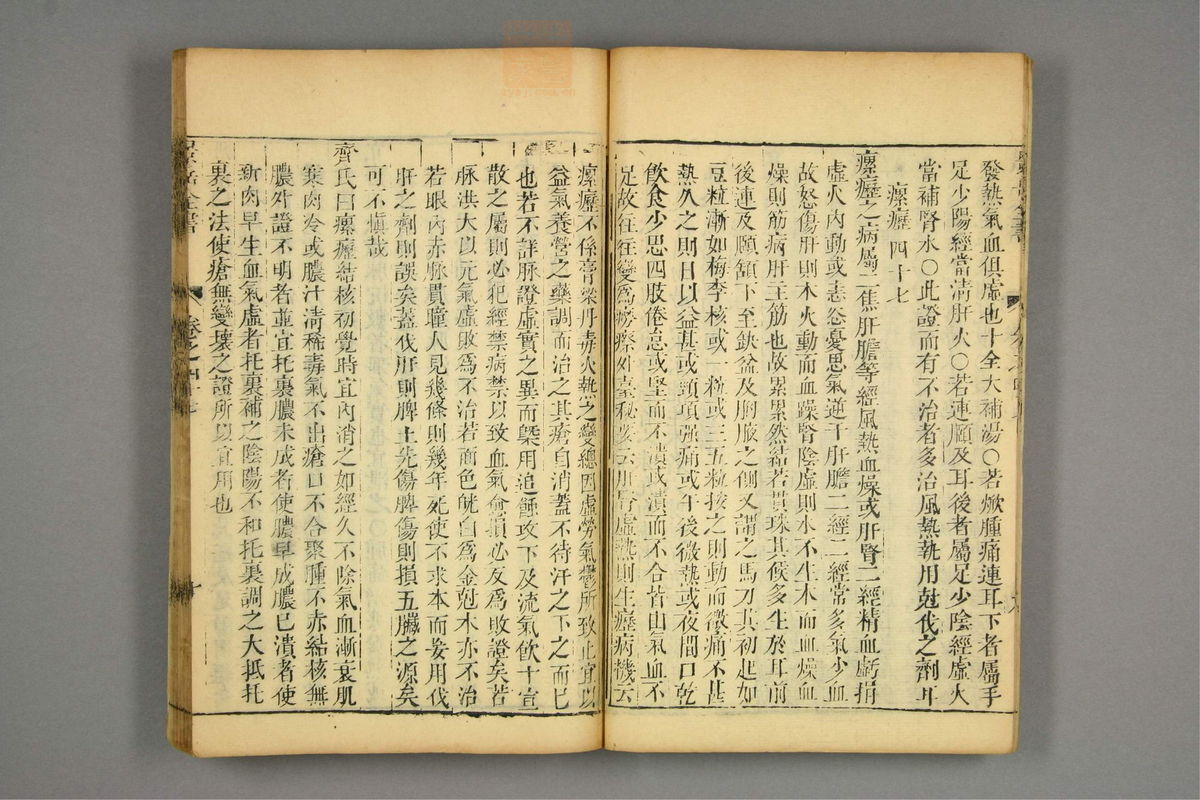 發熱氣血俱虛也十全大補湯○若焮腫痛連耳下者屬手
足少陽經當清肝火○若連頤及耳後者屬足少陰經虛火
當補腎水○此證而有不治者多治風熱執用尅伐之劑耳
瘰癧四十七
瘰癧之病屬三焦肝膽等經風熱血燥或肝腎二經精血虧損
虛火內動或恚忿憂思氣逆于肝膽二經二經常多氣少血
故怒傷肝則木火動而血躁腎陰虛則水不生木而血燥血
燥則筋病肝主筋也故累累然結若貫珠其候多生於耳前
後連及頤頷下至鈌盆及胸腋之側又謂之馬刀其初起如
豆粒漸如梅李核或一粒或三五粒按之則動而微痛不甚
熱久之則日以益甚或頸項强痛或午後微熱或夜間口乾
飲食少思四肢倦怠或堅而不潰或潰而不合皆由氣血不
足故往往變爲癆瘵外臺秘要云肝腎虛熱則生癧病機云
瘰癧不係膏粱丹毒火熱之變總因虛勞氣鬱所致止宜以
益氣養營之藥調而治之其瘡自消蓋不待汗之下之而已
也若不詳脉證虛實之異而槩用追蝕攻下及流氣飲十宣
散之屬則必犯經禁病禁以致血氣愈損必反爲敗證矣若
脉洪大以元氣虛敗爲不治若面色㿠白爲金尅木亦不治
若眼內赤脉貫瞳人見幾條則幾年死使不求本而妄用伐
肝之劑則誤矣蓋伐肝則脾土先傷脾傷則損五臟之源矣
可不慎哉
齊氏曰瘰癧結核初覺時宜內消之如經久不除氣血漸衰肌
寒肉冷或膿汁清稀毒氣不出瘡口不合聚腫不赤結核無
膿外證不明者並宜托裏膿未成者使膿早成膿已潰者使
新肉早生血氣虛者托裏補之陰陽不和托裏調之大抵托
裏之法使瘡無變壞之證所以宜用也
景岳全書
卷之四十七